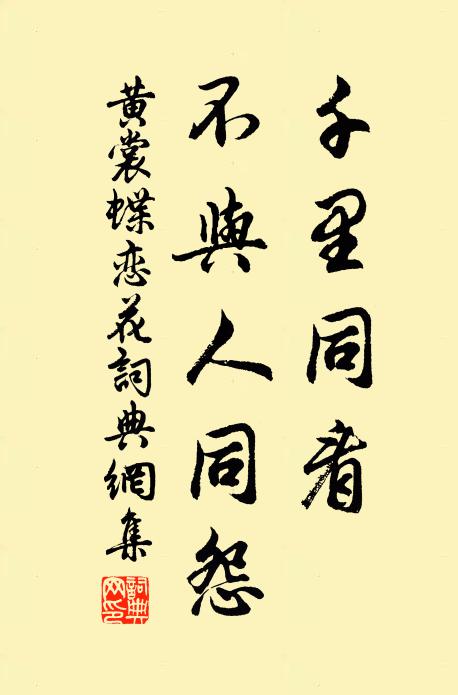 千里同看
不與人同怨
黄裳蝶恋花詞典網集
詞典网印